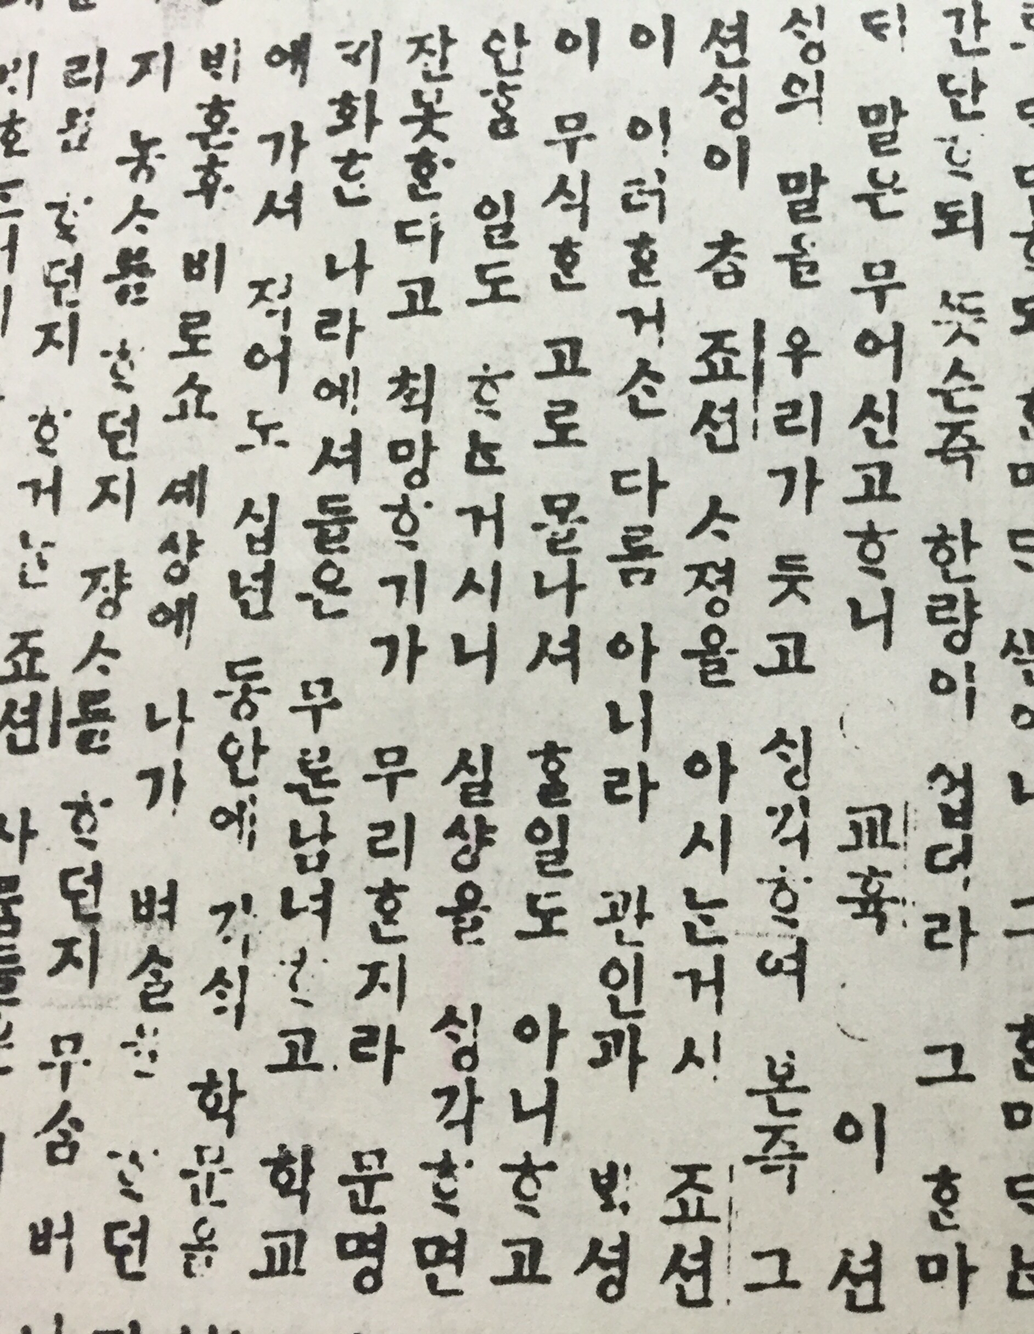 간단ᄒᆞ되 ᄯᅳᆺ슨즉 한량이 업더라 그 ᄒᆞᆫ마
듸 말은 무어신고ᄒᆞ니 (교휵) 이 션
ᄉᆡᆼ의 말을 우리가 듯고 ᄉᆡᆼ각ᄒᆞ여 본즉 그
션ᄉᆡᆼ이 춤 죠션 ᄉᆞ졍을 아시는거시 죠션
이 이러ᄒᆞᆫ거슨 다름 아니라 관인과 ᄇᆡᆨ셩
이 무식ᄒᆞᆫ 고로 몰나셔 ᄒᆞᆯ일도 아니ᄒᆞ고
안ᄒᆞᆯ 일도 ᄒᆞᄂᆞᆫ거시니 실샹을 ᄉᆡᆼ각ᄒᆞ면
잔못ᄒᆞᆫ다고 ᄎᆡᆨ망ᄒᆞ기가 무리ᄒᆞᆫ지라 문명
ᄀᆡ화ᄒᆞᆫ 나라에셔들은 무론남녀ᄒᆞ고 학교
에 가셔 적어도 십년 동안에 지식 학문을
ᄇᆡ혼후 비로쇼 셰샹에 나가 벼슬을 ᄒᆞ던
지 농ᄉᆞ를 ᄒᆞ던지 쟝ᄉᆞ를 ᄒᆞ던지 무ᄉᆞᆷ 버
리를 ᄒᆞ던지 ᄒᆞ거ᄂᆞᆫ 죠션 사ᄅᆞᆷ들은